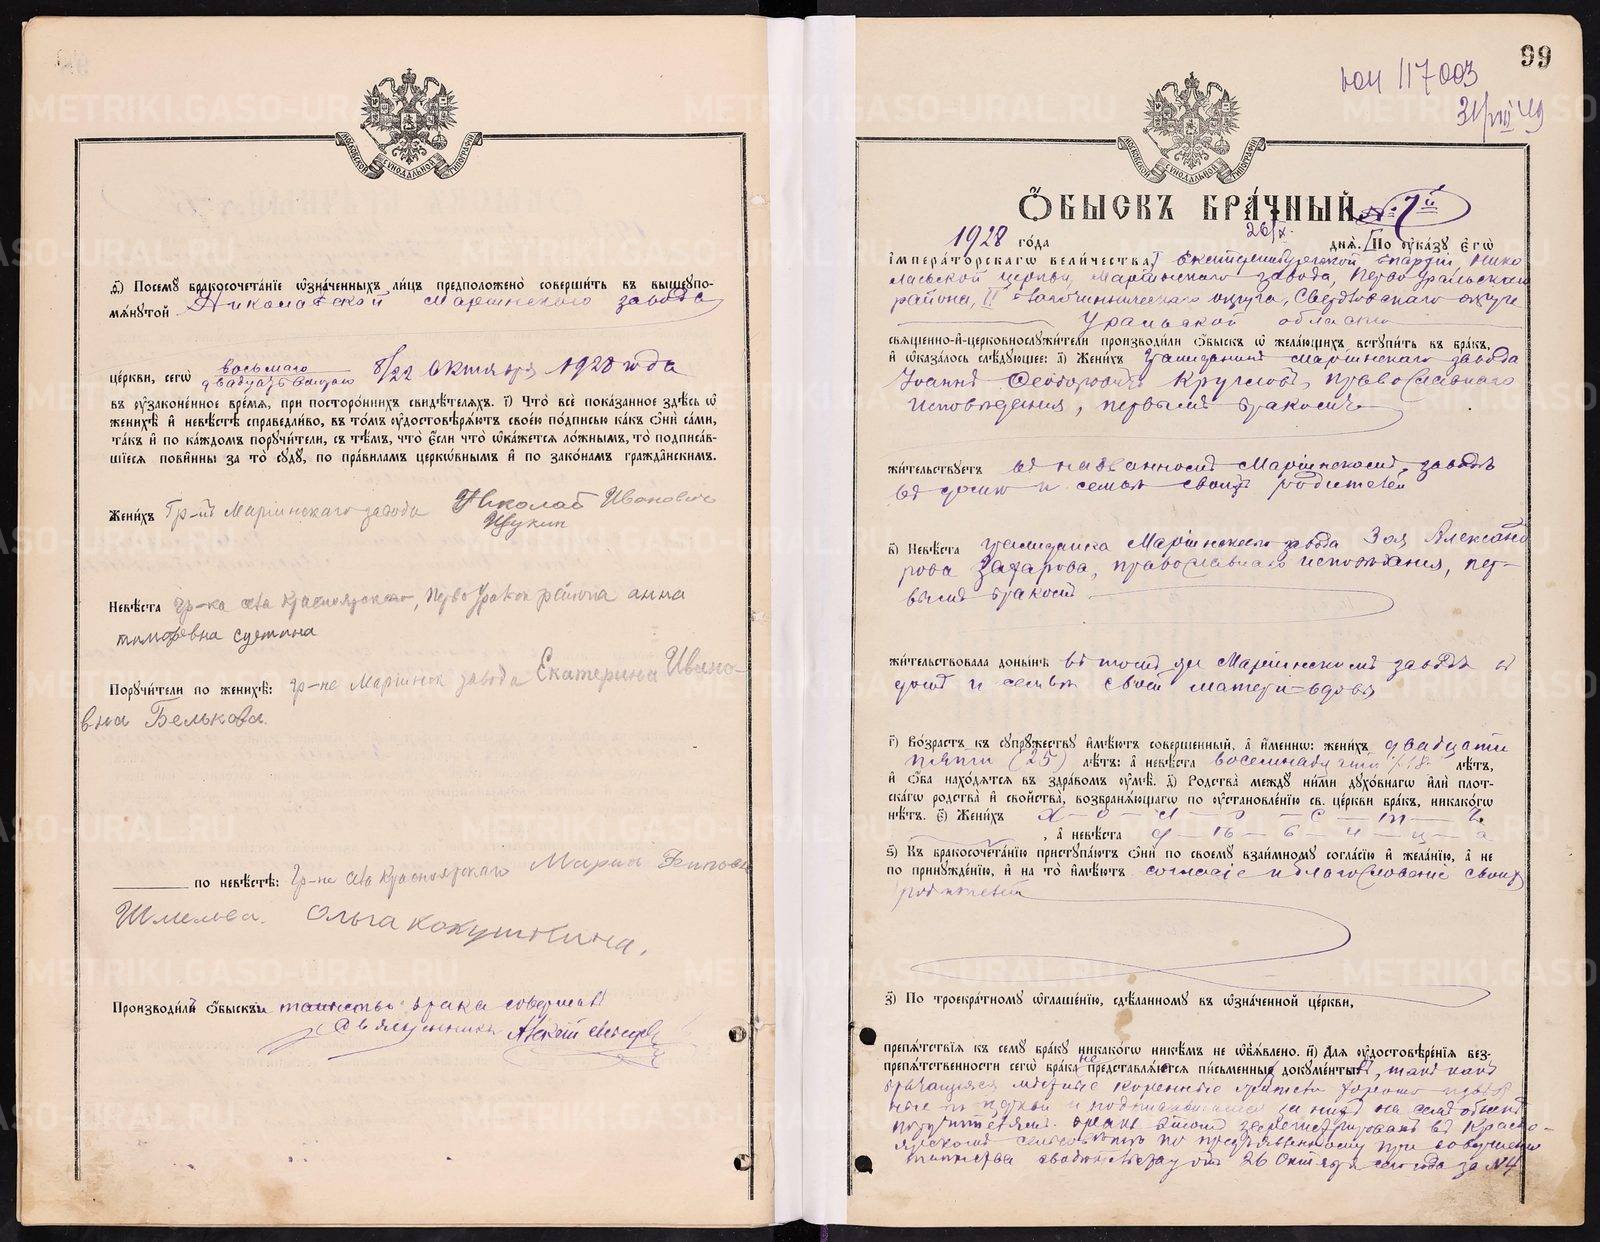 МОСКОВСКОЙ СѴНОДАЛЬНОЙ ТИПОГРАФІИ
ѳ҃) Посемꙋ бракосочетаніе ѡзначенныхъ лицъ предположено совершить въ вышеꙋпо-
мѧнꙋтой Николаевской Маріинского завода
церкви, сегѡ восьмаго 8/22 октября 1928 года
двадцать втораго
въ ᲂузаконенное времѧ, при постороннихъ свидѣтелѧхъ. і҃) Что все показанное здѣсь ѡ
женихѣ и невѣстѣ справедливо, въ томъ ᲂудостовѣрѧютъ своею подписью какъ ѻни сами,
такъ и по каждомъ порꙋчители, съ тѣмъ, что если что ѡкажетсѧ ложнымъ, то подписав-
шіесѧ повинны за то сꙋдꙋ, по правиламъ церковнымъ и по законамъ гражданскимъ.
Женихъ Гр-нъ Маріинскаго завода Николай Иванович
Щукин
Невѣста гр-ка села Красноярскаго, Перво района анна
тимофевна
Порꙋчители по женихѣ: гр-не Маріинск завода Екатерина Ивано-
вна Белькова.
по невѣстѣ: Гр-не села Красноярскаго Мария
Шмелева. Ольга Кокушкина.
Производилъ ѻбыскъ и таинство брака совершалъ
Священникъ Алексѣй
99
117003
31/VIII 49
МОСКОВСКОЙ СѴНОДАЛЬНОЙ ТИПОГРАФІИ
Ѻбыскъ брачный № 7й
1928 года 26/X днѧ. По ᲂуказꙋ Егѡ
Императорскагѡ величества, Екатеринбургской Епархіи, Нико
лаевской церкви, Маріинскаго завода, Первоуральскаго
района, II благочинническаго округа, Свердловскаго округа
Уральской области
свѧщенно-и-церковнослꙋжители производили ѻбыскъ ѡ желающихъ встꙋпить въ бракъ,
и ѡказалось слѣдꙋющее: а҃) Женихъ гражданинъ Маріинскаго завода
Іоаннъ Ѳеодоровъ Кругловъ, православнаго
исповѣданія, первымъ бракомъ
жительствꙋетъ въ названномъ Маріинскомъ заводѣ
въ домѣ и семьѣ своихъ родителей
в҃) Невѣста гражданка Маріинскаго завода Зоя Александ
рова Захарова, православнаго исповѣданія, пер-
вымъ бракомъ
жительствовала донынѣ въ томъ же Маріинскомъ заводѣ въ
домѣ и семьѣ своей матери-вдовы
г҃) Возрастъ къ сꙋпрꙋжествꙋ имѣютъ совершенный, а именнѡ: женихъ двадцати
пяти (25) лѣтъ: а невѣста восемнадцати 18 лѣтъ,
и ѻба находѧтсѧ въ здравомъ ᲂумѣ. д҃) Родства междꙋ ними дꙋховнагѡ или плот-
скагѡ родства и свойства, возбранѧющагѡ по ᲂустановленію св. церкви бракъ, никакогѡ
нѣтъ. е҃) Женихъ х-о-л-о-с-т-ъ
, а невѣста д-ѣ-в-и-ц-а
ѕ҃) Къ бракосочетанію пристꙋпаютъ ѻни по своемꙋ взаимномꙋ согласію и желанію, а не
по принꙋжденію, и на то имѣютъ согласіе и благословеніе своихъ
родителей
з҃) По троекратномꙋ ѡглашенію, сдѣланномꙋ въ ѡзначенной церкви,
препѧтствіѧ къ семꙋ бракꙋ никакогѡ никѣмъ не ѡбъѧвлено. и҃) Длѧ ᲂудостовѣреніѧ без-
препѧтственности сегѡ брака не представлѧютсѧ письменные докꙋменты, такъ какъ
брачащіеся мѣстные коренные жители хорошо
и подписавшимся за нихъ на семъ обыскѣ
поручителямъ. бракъ этотъ зарегистрированъ въ Красно-
ярскомъ сельсовѣтѣ по предъявленному при совершеніи
таинства свидѣтельству отъ 26 Октября сего года за №4